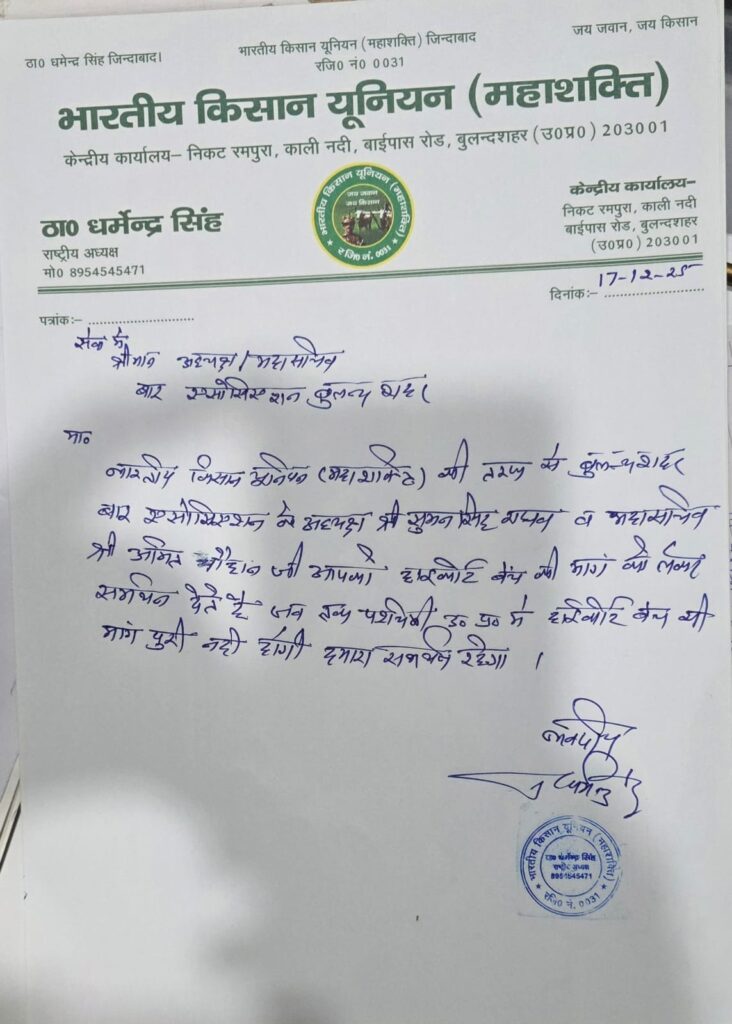 ठा0 धमेन्द्र सिंह जिन्दाबाद।
भारतीय किसान यूनियन (महाशक्ति) जिन्दाबाद
जय जवान, जय किसान
रजि0 नं0 0031
भारतीय किसान यूनियन (महाशक्ति)
केन्द्रीय कार्यालय– निकट रमपुरा, काली नदी, बाईपास रोड, बुलन्दशहर (उ0प्र0) 203001
ठा0 धर्मेन्द्र सिंह
राष्ट्रीय अध्यक्ष
मो0 8954545471
भारतीय किसान यूनियन (महाशक्ति)
जय जवान
जय किसान
रजि0 नं. 0031
केन्द्रीय कार्यालय–
निकट रमपुरा, काली नदी
बाईपास रोड, बुलन्दशहर
(उ0प्र0) 203001
पत्रांक:– ........................
दिनांक:– 17-12-25
सेवा में
श्रीमान अध्यक्ष / महासचिव
बार एसोसिएशन बुलन्दशहर
मा०
भारतीय किसान यूनियन (महाशक्ति) की तरफ से बुलन्दशहर
बार एसोसिएशन के अध्यक्ष श्री सुमन सिंह राघव व महासचिव
श्री अमित चौहान जी आपको हाईकोर्ट बेंच की मांग को लेकर
समर्थन देते है जब तक पश्चिमी उ० प्र० मे हाईकोर्ट बेंच की
मांग पुरी नही होगी हमारा समर्थन रहेगा ।
भवदीय
धर्मेन्द्र
भारतीय किसान यूनियन (महाशक्ति)
ठा0 धर्मेन्द्र सिंह
राष्ट्रीय अध्यक्ष
8954545471
रजि0 नं. 0031